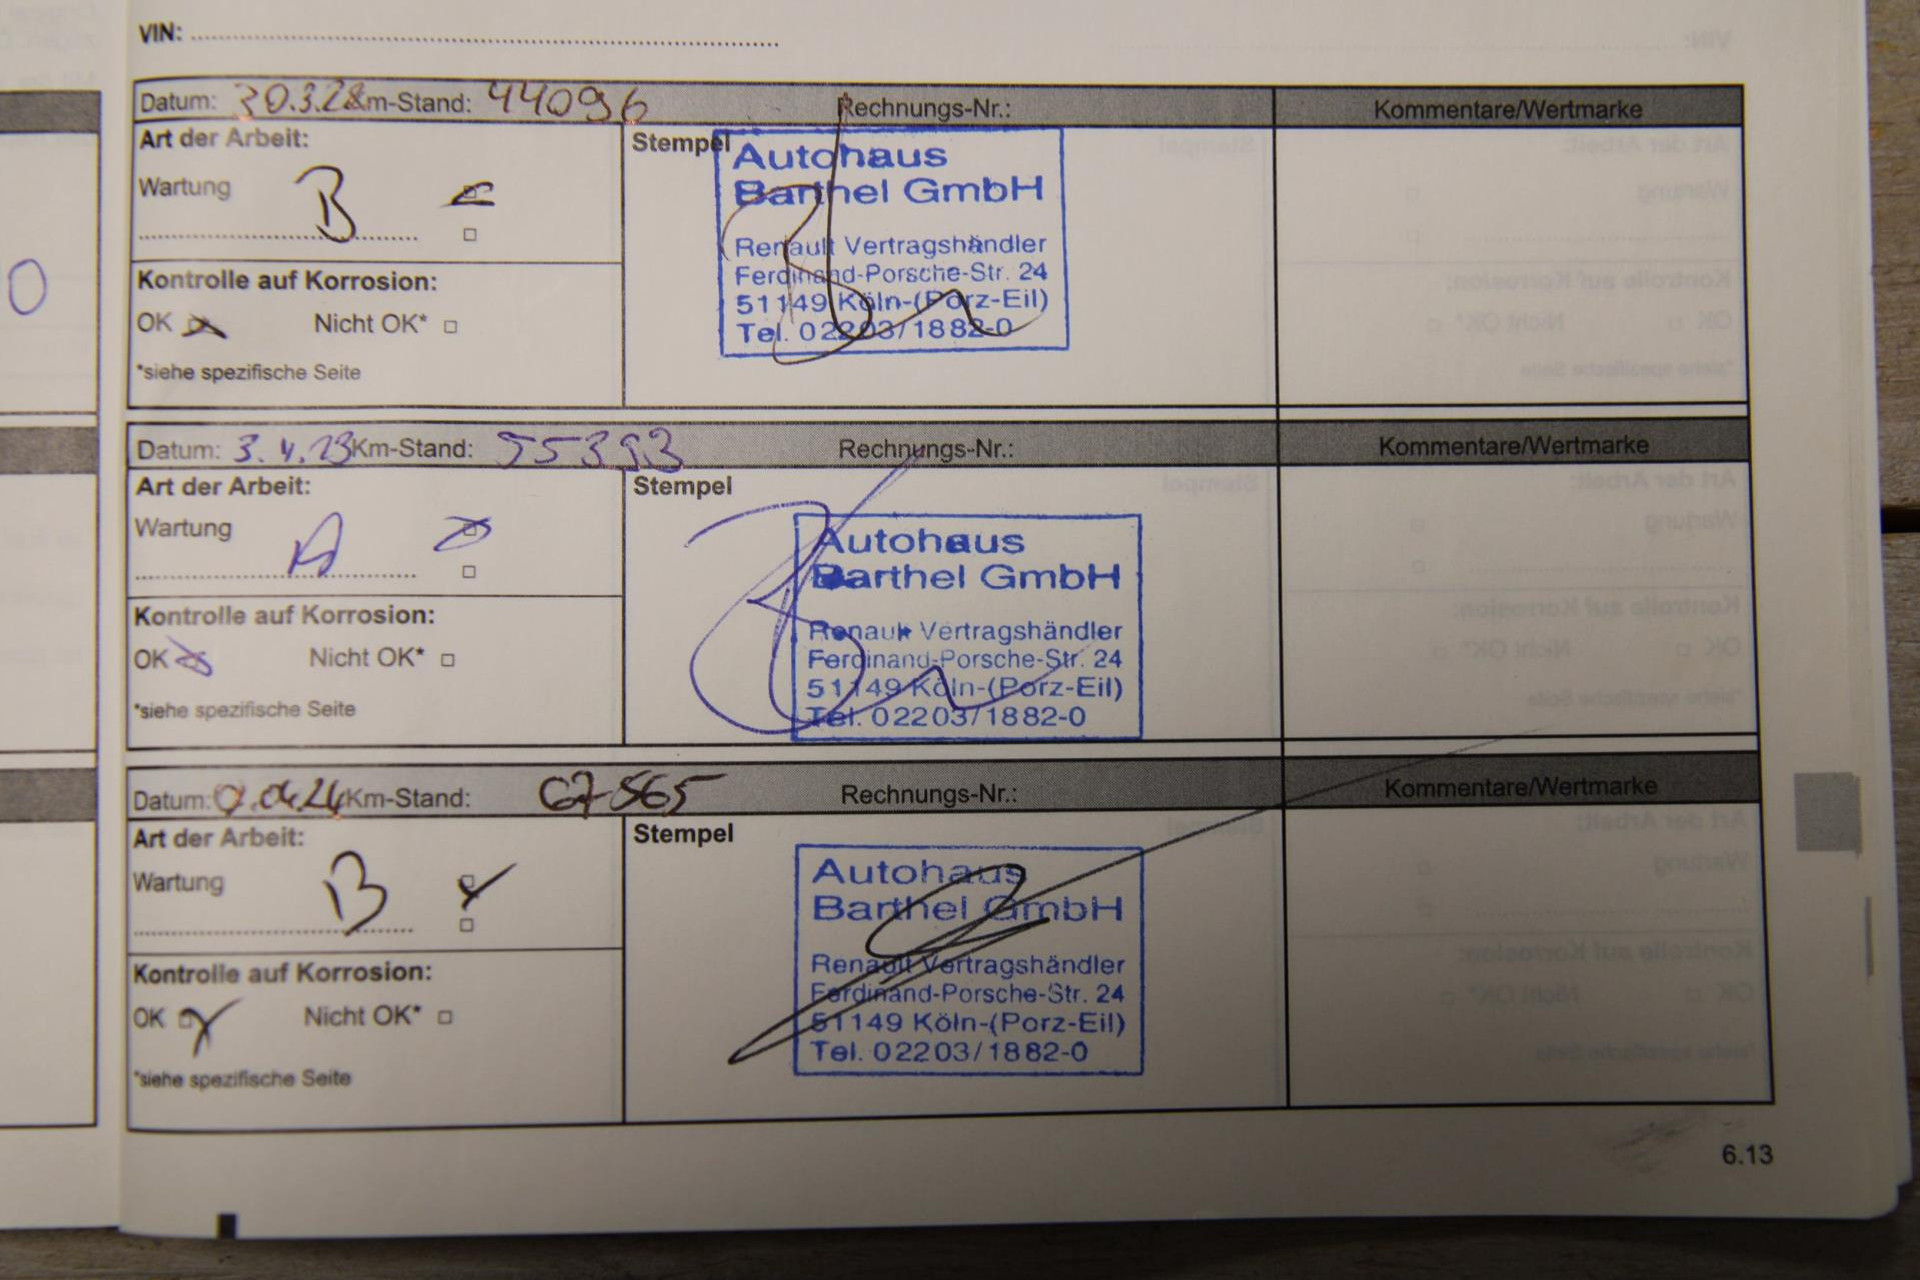 VIN:
Datum: 30.3.22 Km-Stand: 44096 Rechnungs-Nr.: Kommentare/Wertmarke
Art der Arbeit:
Stempel
Wartung B
Autohaus
Barthel GmbH
Renault Vertragshändler
Ferdinand-Porsche-Str. 24
51149 Köln-(Porz-Eil)
Tel. 02203/1882-0
Kontrolle auf Korrosion:
OK Nicht OK*
*siehe spezifische Seite
Datum: 3.4.23 Km-Stand: 55393 Rechnungs-Nr.: Kommentare/Wertmarke
Art der Arbeit:
Stempel
Wartung A
Autohaus
Barthel GmbH
Renault Vertragshändler
Ferdinand-Porsche-Str. 24
51149 Köln-(Porz-Eil)
Tel. 02203/1882-0
Kontrolle auf Korrosion:
OK Nicht OK*
*siehe spezifische Seite
Datum: Km-Stand: 67565 Rechnungs-Nr.: Kommentare/Wertmarke
Art der Arbeit:
Stempel
Wartung B
Autohaus
Barthel GmbH
Renault Vertragshändler
Ferdinand-Porsche-Str. 24
51149 Köln-(Porz-Eil)
Tel. 02203/1882-0
Kontrolle auf Korrosion:
OK Nicht OK*
*siehe spezifische Seite
6.13